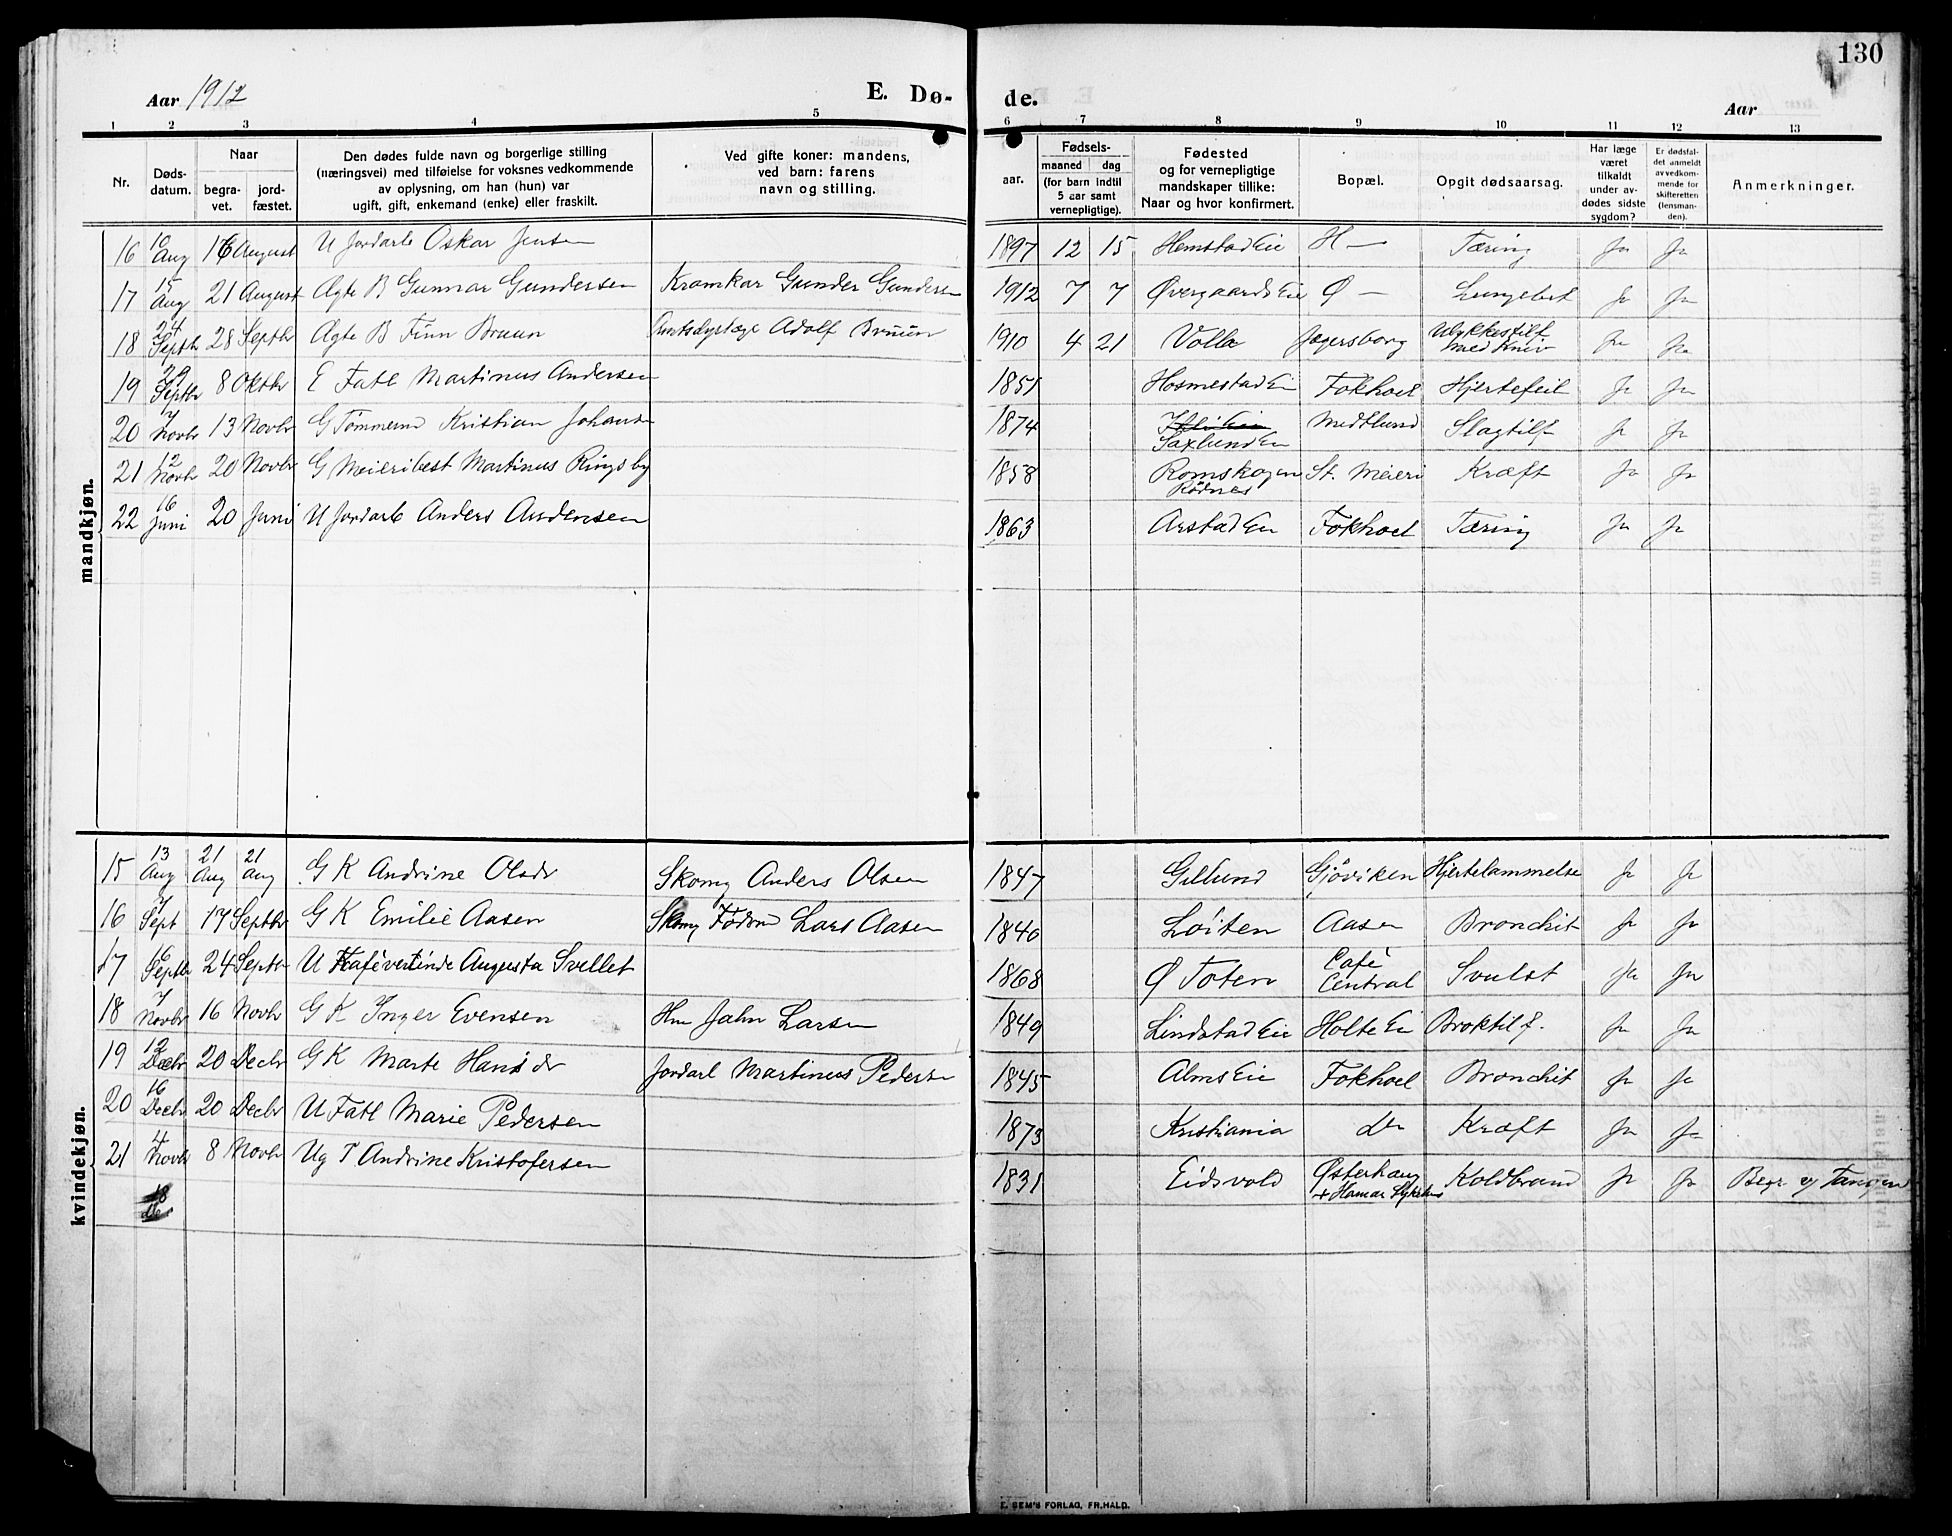 130
Aar 1912 E. Dø- de. Aar
1 2 3 4 5 6 7 8 9 10 11 12 13
Nr.
Døds-
datum.
Naar
begra-
vet.
jord-
fæstet.
Den dødes fulde navn og borgerlige stilling
(næringsvei) med tilføielse for voksnes vedkommende
av oplysning, om han (hun) var
ugift, gift, enkemand (enke) eller fraskilt.
Ved gifte koner: mandens,
ved barn: farens
navn og stilling.
aar.
Fødsels-
maaned dag
(for barn indtil
5 aar samt
vernepligtige).
Fødested
og for vernepligtige
mandskaper tillike:
Naar og hvor konfirmert.
Bopæl.
Opgit dødsaarsag.
Har læge
været
tilkaldt
under av-
dødes sidste
sygdom?
Er dødsfal-
det anmeldt
av vedkom-
mende for
skifteretten
(lensman-
den).
Anmerkninger.
mandkjøn.
16 10 Aug 16 August U Jordarb Oskar Jensen 1897 12 15 Hemstad Eie H — Tæring Ja Ja
17 15 Aug 21 August Ægte B Gunnar Gundersen Gunder Gundersen 1912 7 7 Øvergaards Eie Ø — Lungebet Ja Ja
18 24 Septb 28 Septbr Ægte B Finn Bruun Adolf Bruun 1910 4 21 Volla Jægersborg Ulykkestilf med Kniv Ja Ja
19 29 Septbr 8 Oktbr E Fatl Martinus Andersen 1851 Hosmestad Eie Fokhoel Hjertefeil Ja Ja
20 7 Novbr 13 Novbr G Tømmerm Kristian Johansen 1874 Saxlund Eie Medtlund Slagtilf Ja Ja
21 12 Novbr 20 Novbr G Meieribest Martinus Ringsby 1858 Romskogen Rødnes St. Meieri Kræft Ja Ja
22 16 Juni 20 Juni U Jordarb Anders Andersen 1863 Arstad Eie Fokhoel Tæring Ja Ja
kvindekjøn.
15 13 Aug 21 Aug 21 Aug G K Andrine Olsdr Skomg Anders Olsen 1847 Gillund Gjøviken Hjertelammelse Ja Ja
16 7 Sept 17 Septbr G K Emilie Aasen Skomg Lars Aasen 1840 Løiten Aasen Bronchit Ja Ja
17 16 Septbr 24 Septbr U Kafévertinde Augusta Svellet 1868 Ø Toten Café Central Svulst Ja Ja
18 7 Novbr 16 Novbr G K Inger Evensen Hm John Larsen 1849 Lindstad Eie Holte Eie Broktilf. Ja Ja
19 12 Decbr 20 Decbr G K Marte Hansdr Jordarb Martinus Pedersen 1845 Alms Eie Fokhoel Bronchit Ja Ja
20 16 Decbr 20 Decbr U Fatl Marie Pedersen 1873 Kristiania do Kræft Ja Ja
21 4 Novbr 8 Novbr Ug T Andrine Kristofersen 1831 Eidsvold Østerhaug + Hamar Sykehus Koldbrand Ja Ja Begr. v/ Tangen
18 De
E. SEM'S FORLAG, FR.HALD.